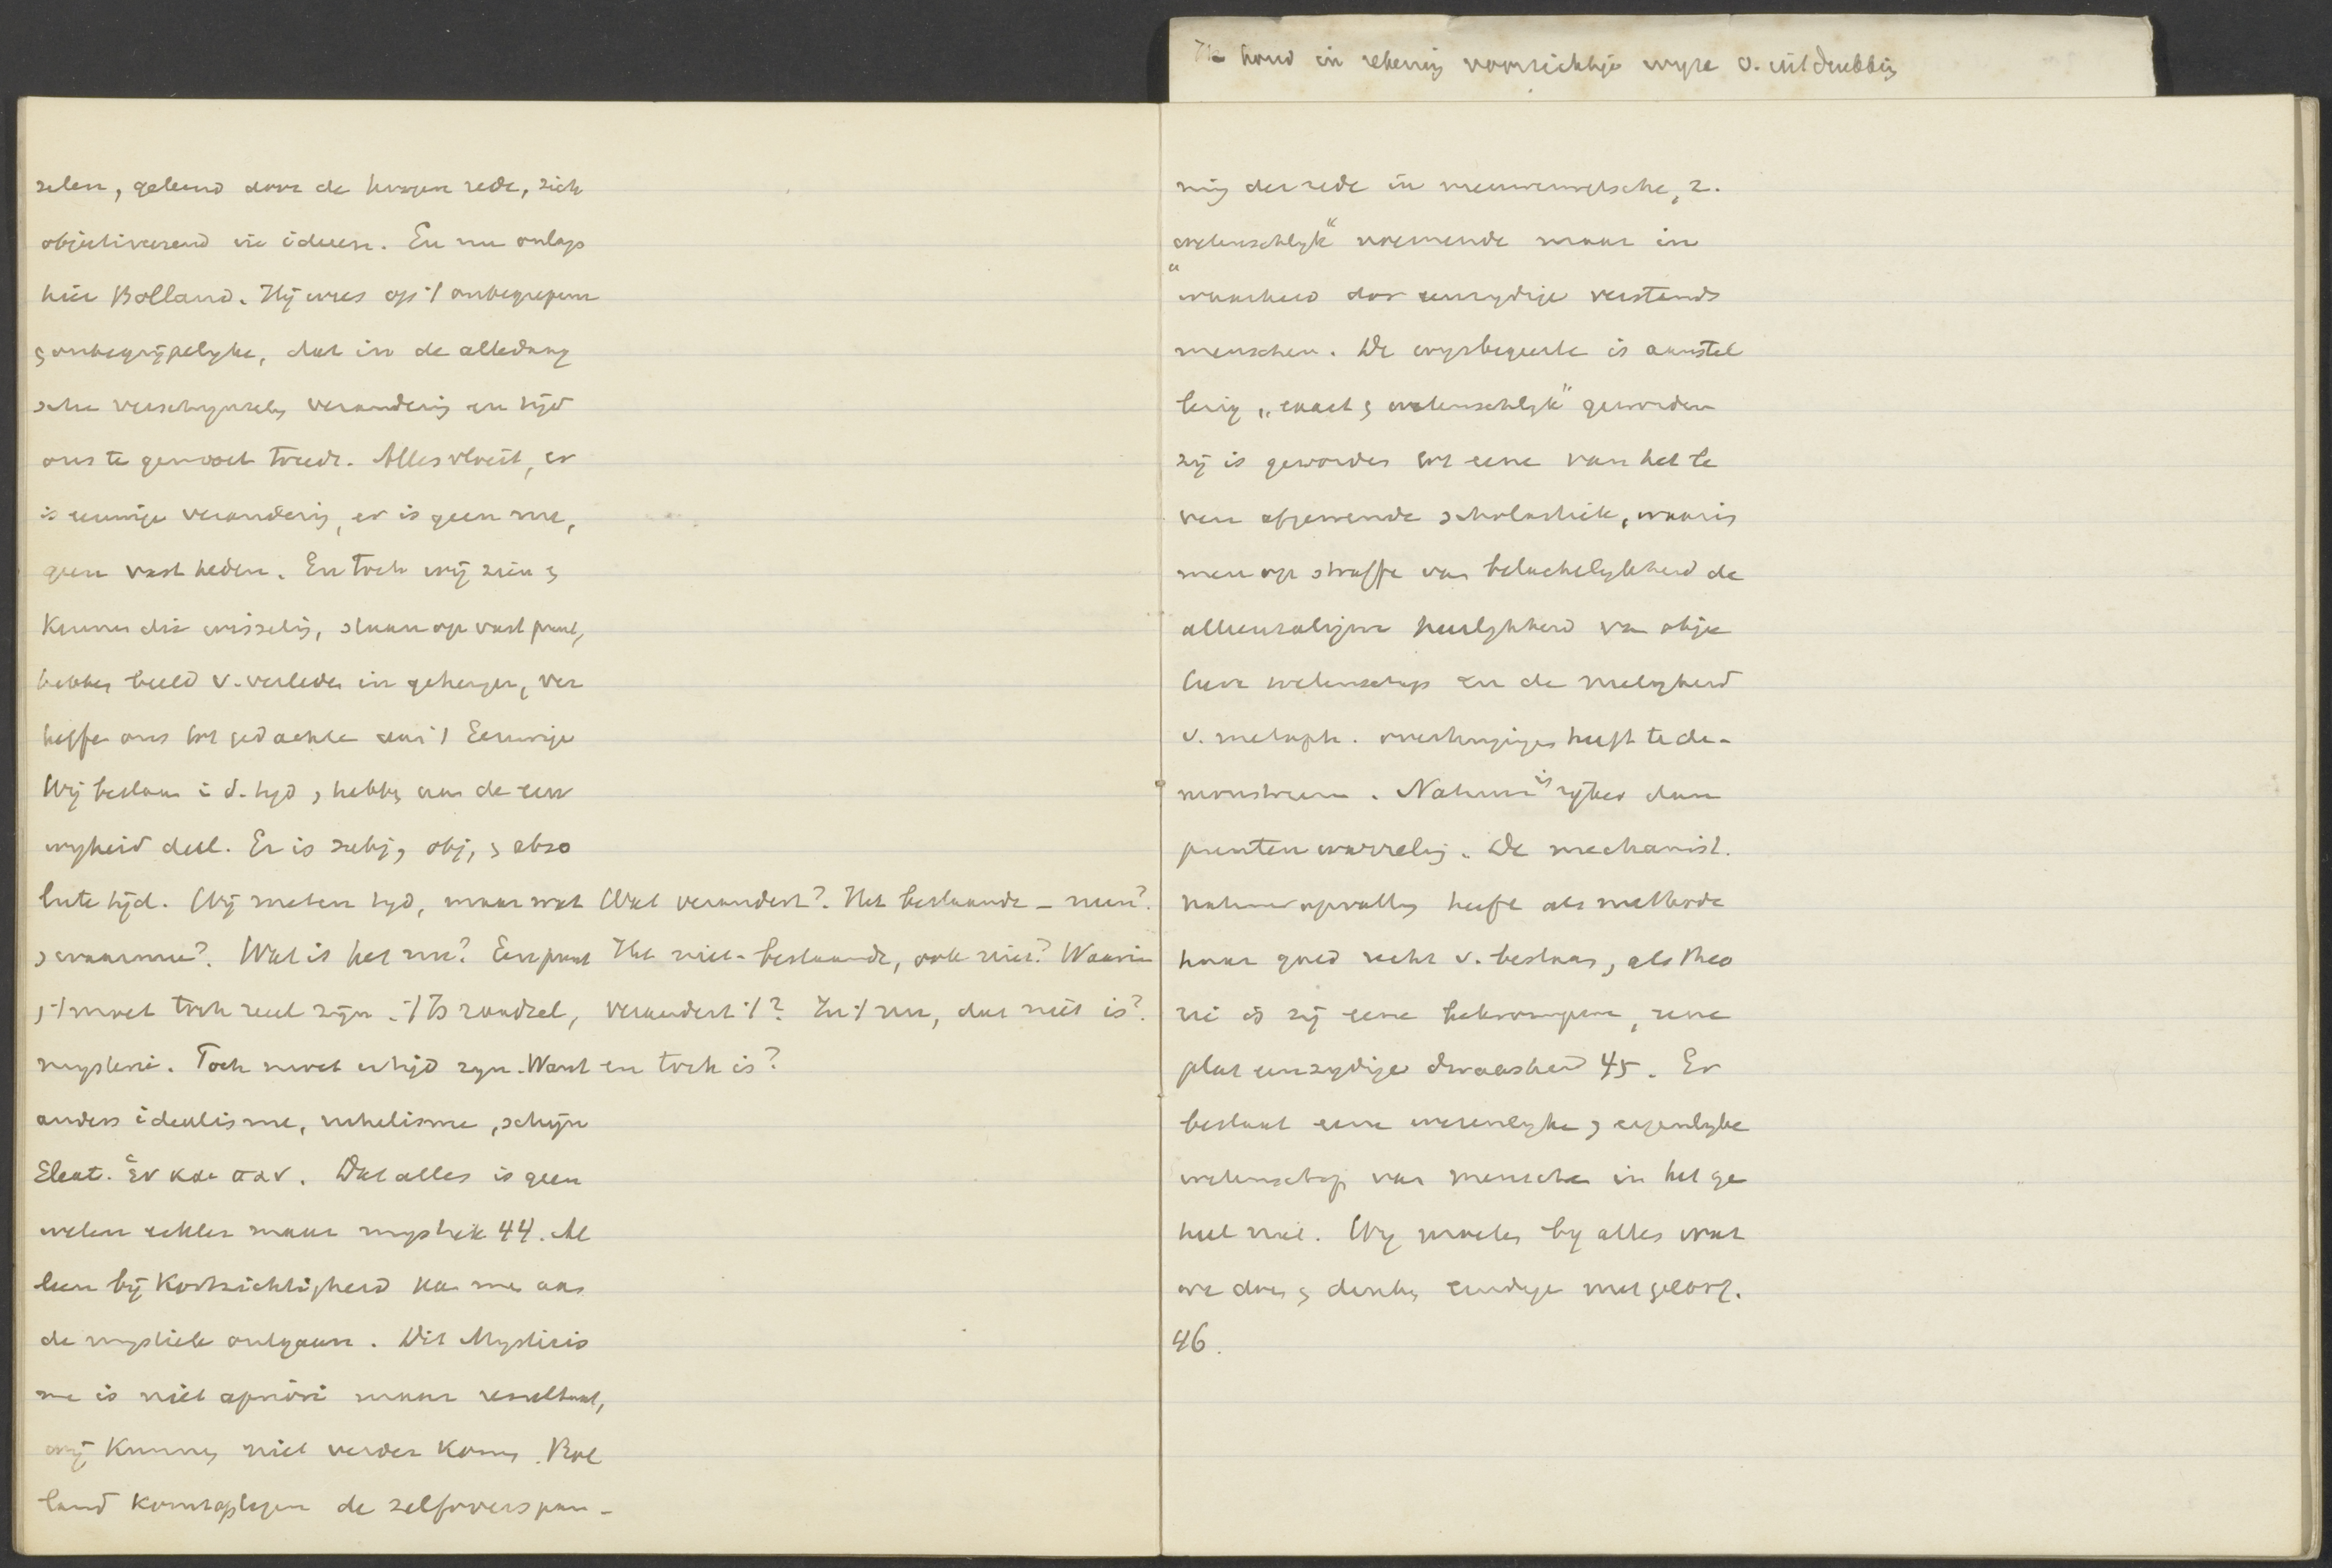 Ik houd in rekening voorzichtige wyze v. uitdrukking
selen, geleend door de hoogere rede, zich
objectiveerend in ideeen. En nu onlangs
hier Bolland. Hij wees op 't onbegrepene
& onbegrijpelyke, dat in de alledaag
sche verschynselen verandering en tijd
ons te gemoet treedt. Alles vloeit, er
is eeuwige verandering, er is geen nu,
geen vastheden. En toch wij zien &
kennen die wisseling, staan op vast punt,
hebben beeld v. verleden in geheugen, ver
heffen ons tot gedachte aan 't Eeuwige
Wij bestaan i. d. tijd & hebben aan de eeu
wigheid deel. Er is subj, obj, & abso
lute tijd. Wij meten tyd, maar wat Wat verandert? Het bestaande – neen?
& waarmee? Wat is het nu? Een punt Het niet-bestaande, ook niet? Waarin
& 't moet toch reeel zijn. 't Is raadsel, verandert 't? In 't nu, dat niet is?
mysterie. Toch moet er tijd zyn. Want en toch is?
anders idealisme, nihelisme, schijn
Eleat. ἑν και παν. Dat alles is geen
weten echter maar mystiek 44. Al
leen bij kortzichtigheid kan men aan
de mystiek ontgaan. Dit Mysticis
me is niet apriori maar resultaat,
wij kunnen niet verder komen. Bol
land komt op tegen de zelfoverspan-
ning der rede in nieuwerwetsche, z.
wetenschlyk" noemende maar in
"waarheid dor eenzydige verstands
menschen. De wysbegeerte is aanstel
lerig „exact & wetenschlyk" geworden
zij is geworden tot eene van het le
ven afgewende scholastiek, waarin
men op straffe van belachelykheid de
alleenzaligm heerlykheid van objec
tieve wetenschap en de nietigheid
v. metaph. overtuigingen heeft te de-
monstreeren. Natuur is rijker dan
puntenwarreling. De mechanist.
natuuropvatting heeft als methode
haar goed recht v. bestaan, als theo
rie is zij eene bekrompene, eene
plat eenzydige dwaasheid 45. Er
bestaat eene wezenlyke & eigenlyke
wetenschap van menschen in het ge
heel niet. Wy moeten by alles wat
we doen & denken eindigen met geloof.
46.